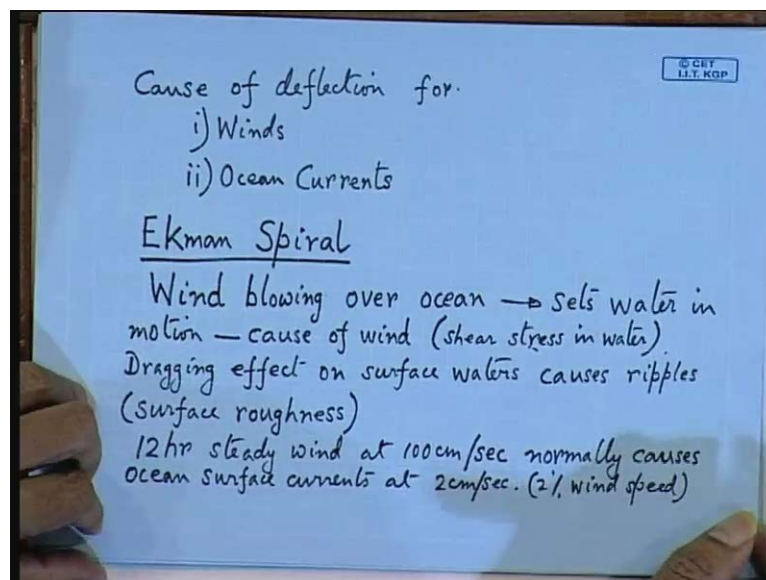 © CET
I.I.T. KGP
Cause of deflection for.
i) Winds
ii) Ocean Currents
Ekman Spiral
Wind blowing over ocean → sets water in
motion — cause of wind (shear stress in water)
Dragging effect on surface waters causes ripples
(surface roughness)
12hr steady wind at 100cm/sec normally causes
Ocean surface currents at 2cm/sec. (2% wind speed)